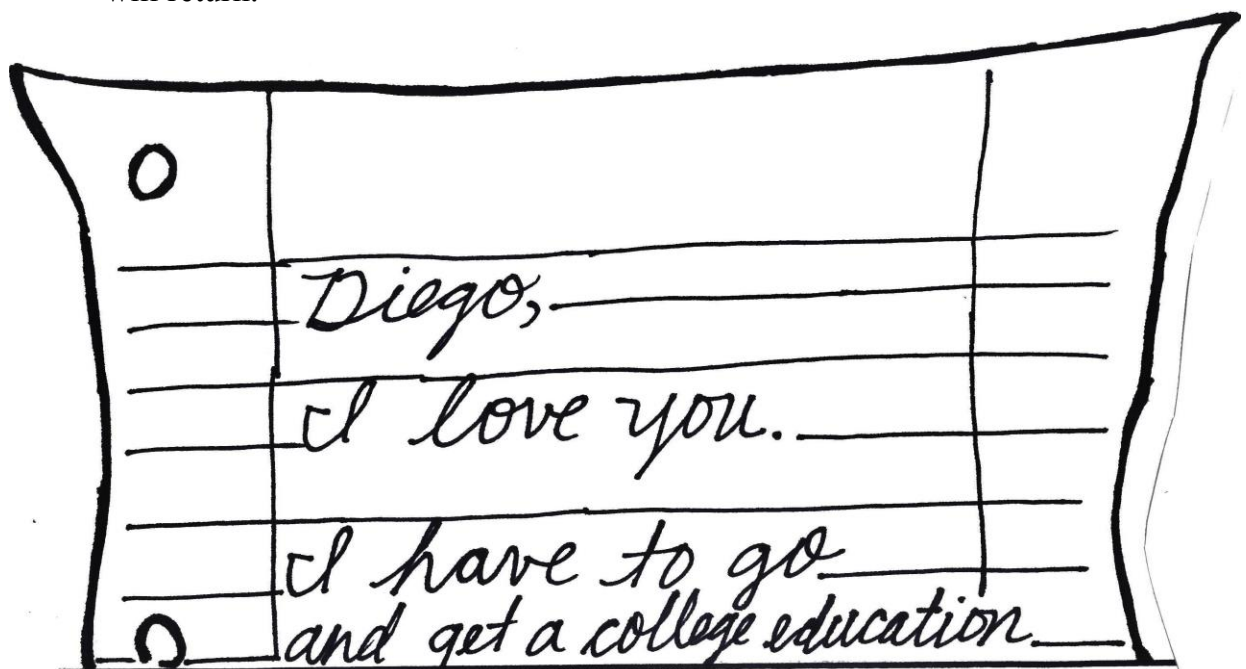 will return.
Diego,
I love you.
I have to go
and get a college education